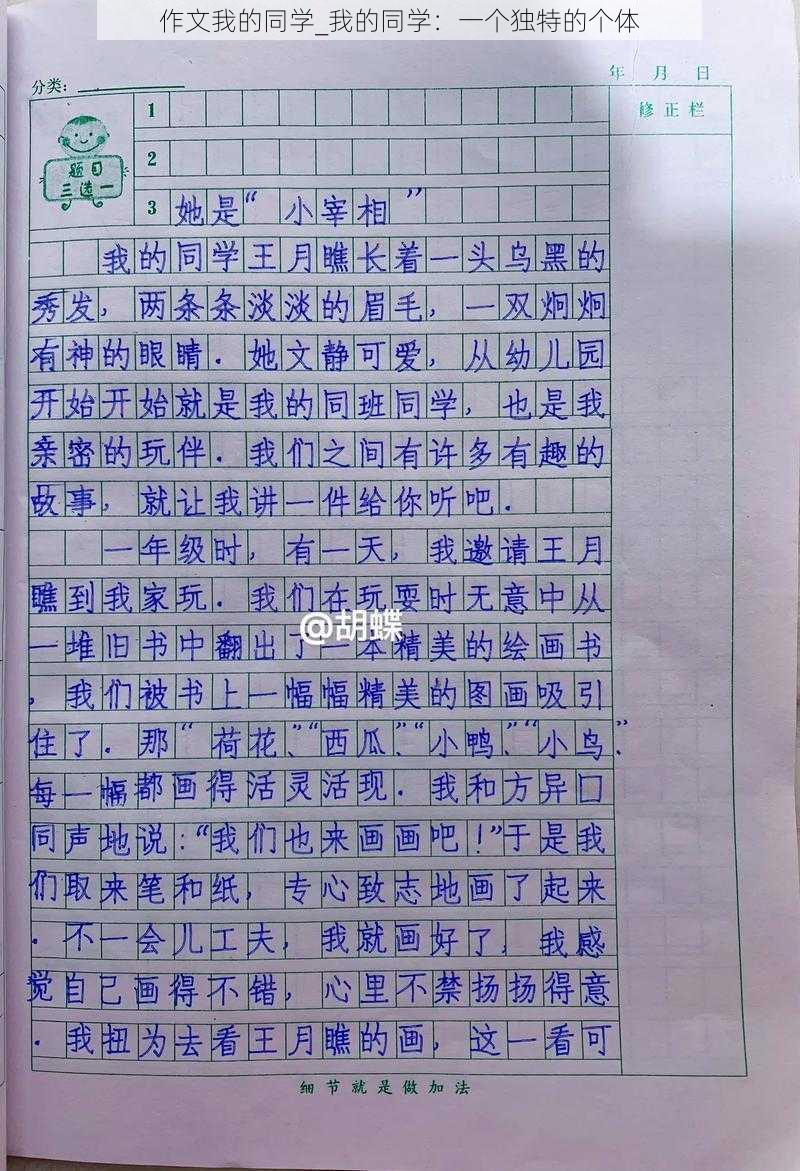 作文我的同学_我的同学：一个独特的个体
分类：
年 月 日
题目
三选一
修正栏
1
2
3 她是“小宰相”
我的同学王月瞧长着一头乌黑的
秀发，两条条淡淡的眉毛，一双炯炯
有神的眼睛．她文静可爱，从幼儿园
开始开始就是我的同班同学，也是我
亲密的玩伴．我们之间有许多有趣的
故事，就让我讲一件给你听吧．
一年级时，有一天，我邀请王月
瞧到我家玩．我们在玩耍时无意中从
一堆旧书中翻出了一本精美的绘画书
，我们被书上一幅幅精美的图画吸引
住了．那“荷花”、“西瓜”、“小鸭”、“小鸟”，
每一幅都画得活灵活现．我和方异口
同声地说：“我们也来画画吧！”于是我
们取来笔和纸，专心致志地画了起来
．不一会儿工夫，我就画好了，我感
觉自己画得不错，心里不禁扬扬得意
．我扭为去看王月瞧的画，这一看可
@胡蝶
细节就是做加法